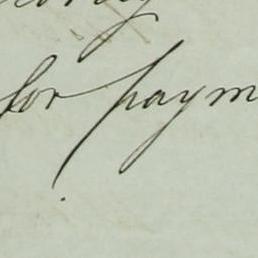 for paym